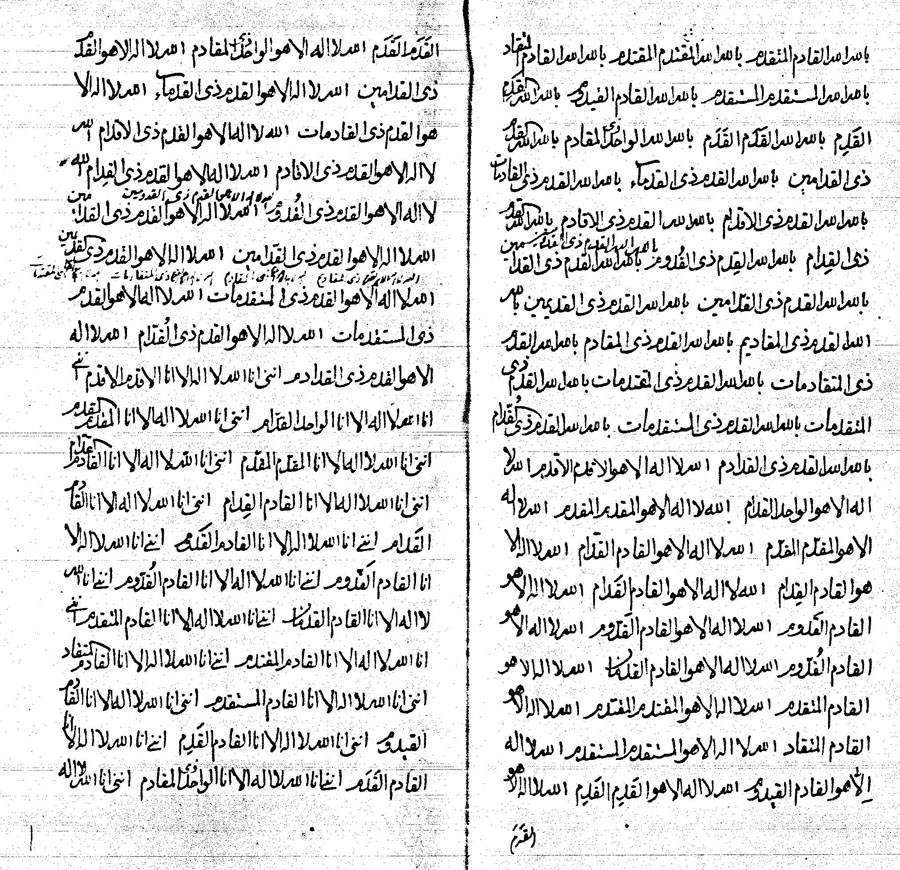 بالله الله القادم المتقدم بالله الله المقتدم المقتدم بالله الله القادم المتقاد
بالله الله المستقدم المستقدم بالله الله القادم القيدوم بالله الله القدم
القدم بالله الله القدم القدم بالله الله الواحد المقادم بالله الله القدم
ذي القدامين بالله الله القدم ذي القدماء بالله الله القدم ذي القادمات
بالله الله القدم ذي الاقدام بالله الله القدم ذي الاقادم بالله الله القدم
ذي القدام بالله الله القدم ذي القدوم بالله الله القدم ذي القدا
بالله الله القدم ذي القدامين بالله الله القدم ذي القديمين بالله
الله القدم ذي المقاديم بالله الله القدم ذي المقادم بالله الله القدم
ذي المتقادمات بالله الله القدم ذي المقتدمات بالله الله القدم ذي
المتقدمات بالله الله القدم ذي المستقدمات بالله الله القدم ذي القدام
بالله الله القدم ذي القدادم الله لا اله الا هو الاقدم الاقدم الله لا
اله الا هو الواحد القدام الله لا اله الا هو المقدم المقدم الله لا اله
الا هو المقدم المقدم الله لا اله الا هو القادم القدام الله لا اله الا
هو القادم القدام الله لا اله الا هو القادم القدام الله لا اله الا هو
القادم القدوم الله لا اله الا هو القادم القدوم الله لا اله الا هو
القادم القدوم الله لا اله الا هو القادم القدمان الله لا اله الا هو
القادم المتقدم الله لا اله الا هو المقتدم المقتدم الله لا اله الا هو
القادم المتقاد الله لا اله الا هو المستقدم المستقدم الله لا اله
الا هو القادم القيدوم الله لا اله الا هو القدم القدم الله لا اله الا هو
القدم
القدم القدم الله لا اله الا هو الواحد المقادم الله لا اله الا هو القدم
ذي القدامين الله لا اله الا هو القدم ذي القدماء الله لا اله الا
هو القدم ذي القادمات الله لا اله الا هو القدم ذي الاقدام الله
لا اله الا هو القدم ذي الاقادم الله لا اله الا هو القدم ذي القدام الله
لا اله الا هو القدم ذي القدوم الله لا اله الا هو القدم ذي القدا
الله لا اله الا هو القدم ذي القدامين الله لا اله الا هو القدم ذي
الله لا اله الا هو القدم ذي المتقدمات الله لا اله الا هو القدم
ذي المستقدمات الله لا اله الا هو القدم ذي القدام الله لا اله
الا هو القدم ذي القدادم انني انا الله لا اله الا انا الاقدم الاقدم انني
انا الله لا اله الا انا الواحد القدام انني انا الله لا اله الا انا المقدم المقدم
انني انا الله لا اله الا انا المقدم المقدم انني انا الله لا اله الا انا القادم القدام
انني انا الله لا اله الا انا القادم القدام انني انا الله لا اله الا انا القادم
القدام انني انا الله لا اله الا انا القادم القدوم انني انا الله لا اله الا
انا القادم القدوم انني انا الله لا اله الا انا القادم القدوم انني انا الله
لا اله الا انا القادم القدمان انني انا الله لا اله الا انا القادم المتقدم انني
انا الله لا اله الا انا القادم المقتدم انني انا الله لا اله الا انا القادم المتقاد
انني انا الله لا اله الا انا القادم المستقدم انني انا الله لا اله الا انا القادم
القيدوم انني انا الله لا اله الا انا القادم القدم انني انا الله لا اله الا انا
القادم القدم انني انا الله لا اله الا انا الواحد المقادم انني انا الله لا اله